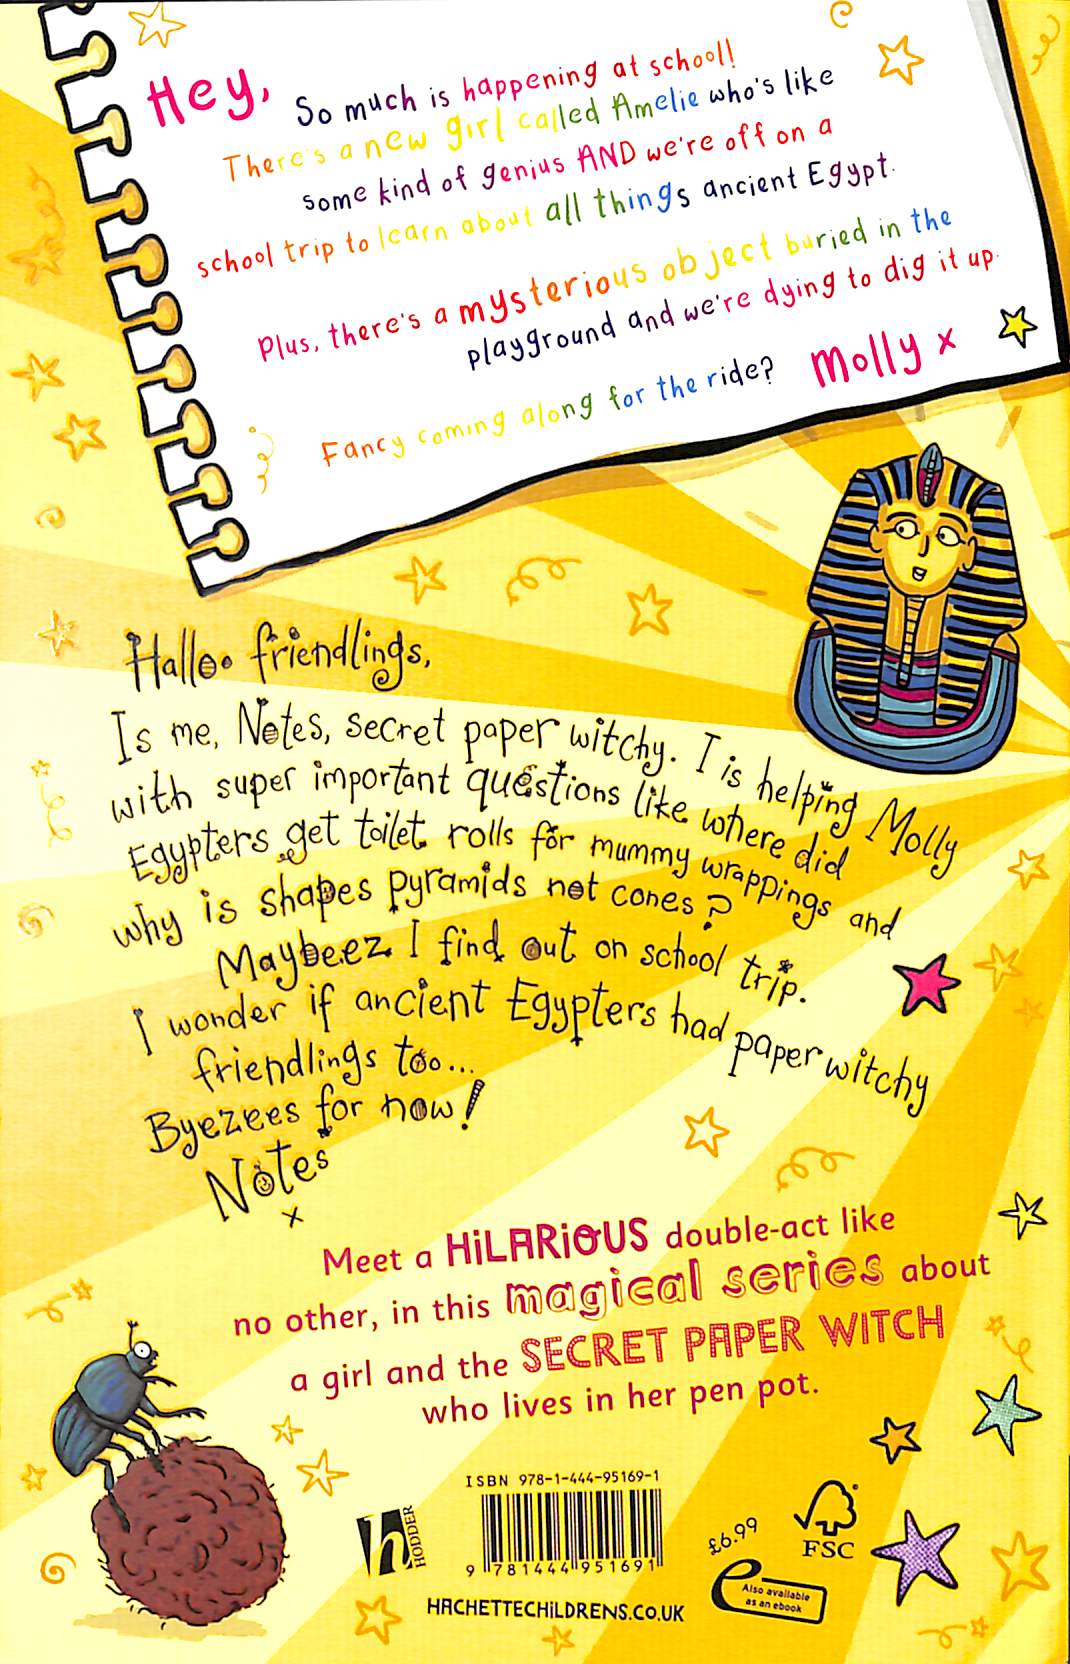 Hey,
So much is happening at school!
There's a new girl called Amelie who's like
some kind of genius AND we're off on a
school trip to learn about all things ancient Egypt.
Plus, there's a mysterious object buried in the
playground and we're dying to dig it up.
Fancy coming along for the ride?
Molly x
Halloo friendlings,
Is me, Notes, secret paper witchy. I is helping Molly
with super important questions like where did
Egypters get toilet rolls for mummy wrappings and
why is shapes pyramids not cones?
Maybeez I find out on school trip.
I wonder if ancient Egypters had paper witchy
friendlings too...
Byezees for now!
Notes
x
Meet a HiLARiOUS double-act like
no other, in this magical series about
a girl and the SECRET PAPER WITCH
who lives in her pen pot.
ISBN 978-1-444-95169-1
9 781444 951691
h HODDER
HACHETTECHILDRENS.CO.UK
£6.99
e Also available
as an ebook
FSC